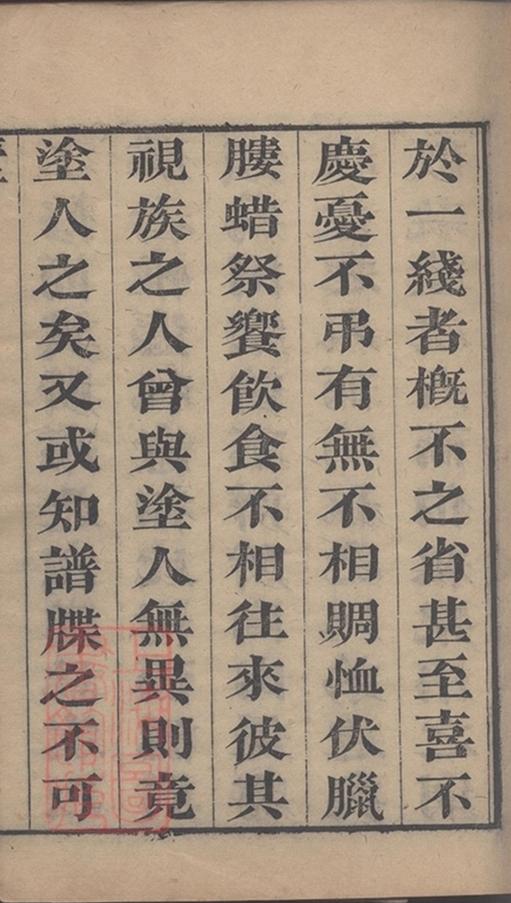 於一綫者概不之省甚至喜不
慶憂不弔有無不相賙恤伏臘
膢蜡祭饗飲食不相往來彼其
視族之人曾與塗人無異則竟
塗人之矣又或知譜牒之不可